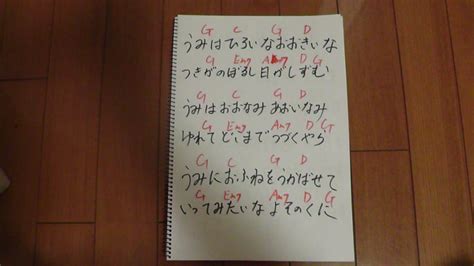 G C G D
うみはひろいなおおきいな
G Em7 Am7 D G
つきがのぼるし日がしずむ
G C G D
うみはおおなみあおいなみ
G Em7 Am7 D G
ゆれてどこまでつづくやら
G C G D
うみにおふねをうかばせて
G Em7 Am7 D G
いってみたいなよそのくに